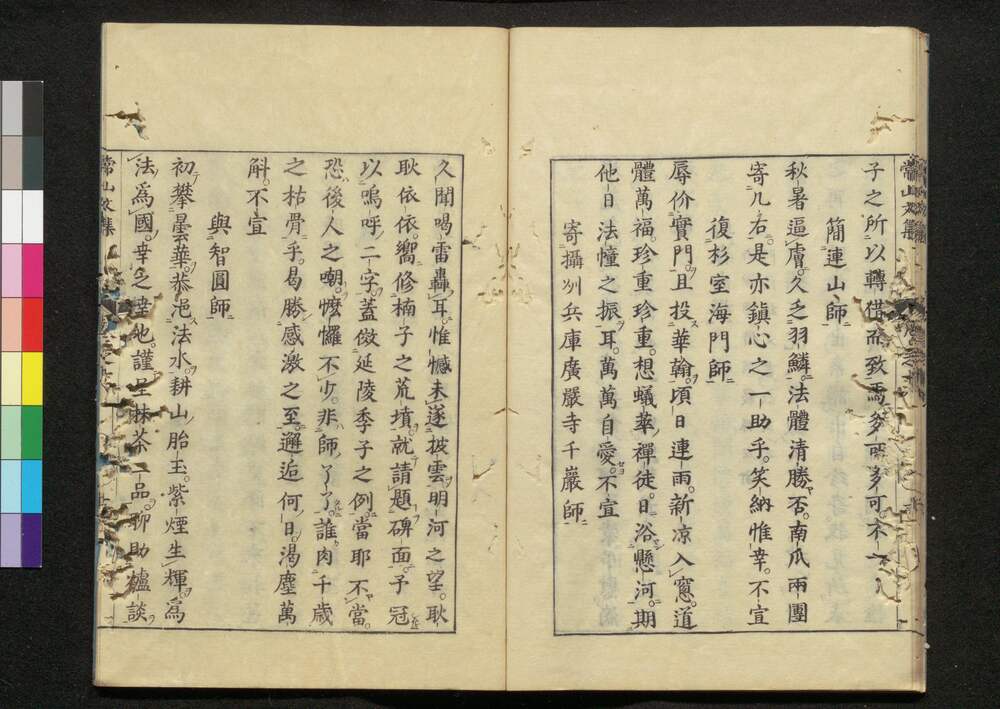 子之所以轉借而致焉多哥多可不一
簡連山師
秋暑逼膚久乏羽鱗法體清勝否南瓜兩團
寄几右是亦鎮心之一助乎笑納惟幸不宣
復杉室海門師
辱价實門且投華翰頃日連雨新凉入窻道
體萬福珍重珍重想蟻華禪徒日浴懸河期
他日法幢之振耳萬萬自愛不宣
寄攝州兵庫廣嚴寺千巖師
久聞喝雷轟耳惟憾未遂披雲明河之望耿
耿依依嚮修楠子之荒墳就請題碑面予冠
以嗚呼二字蓋倣延陵季子之例當耶不當
恐後人之嘲懡㦬不少非師了了誰肉千歲
之枯骨乎曷勝感激之至邂逅何日渴塵萬
斛不宣
與智圓師
初攀曇華恭浥法水耕山胎玉紫煙生輝爲
法爲國幸之幸也謹呈抹茶一品聊助爐談
常山文集
常山文集